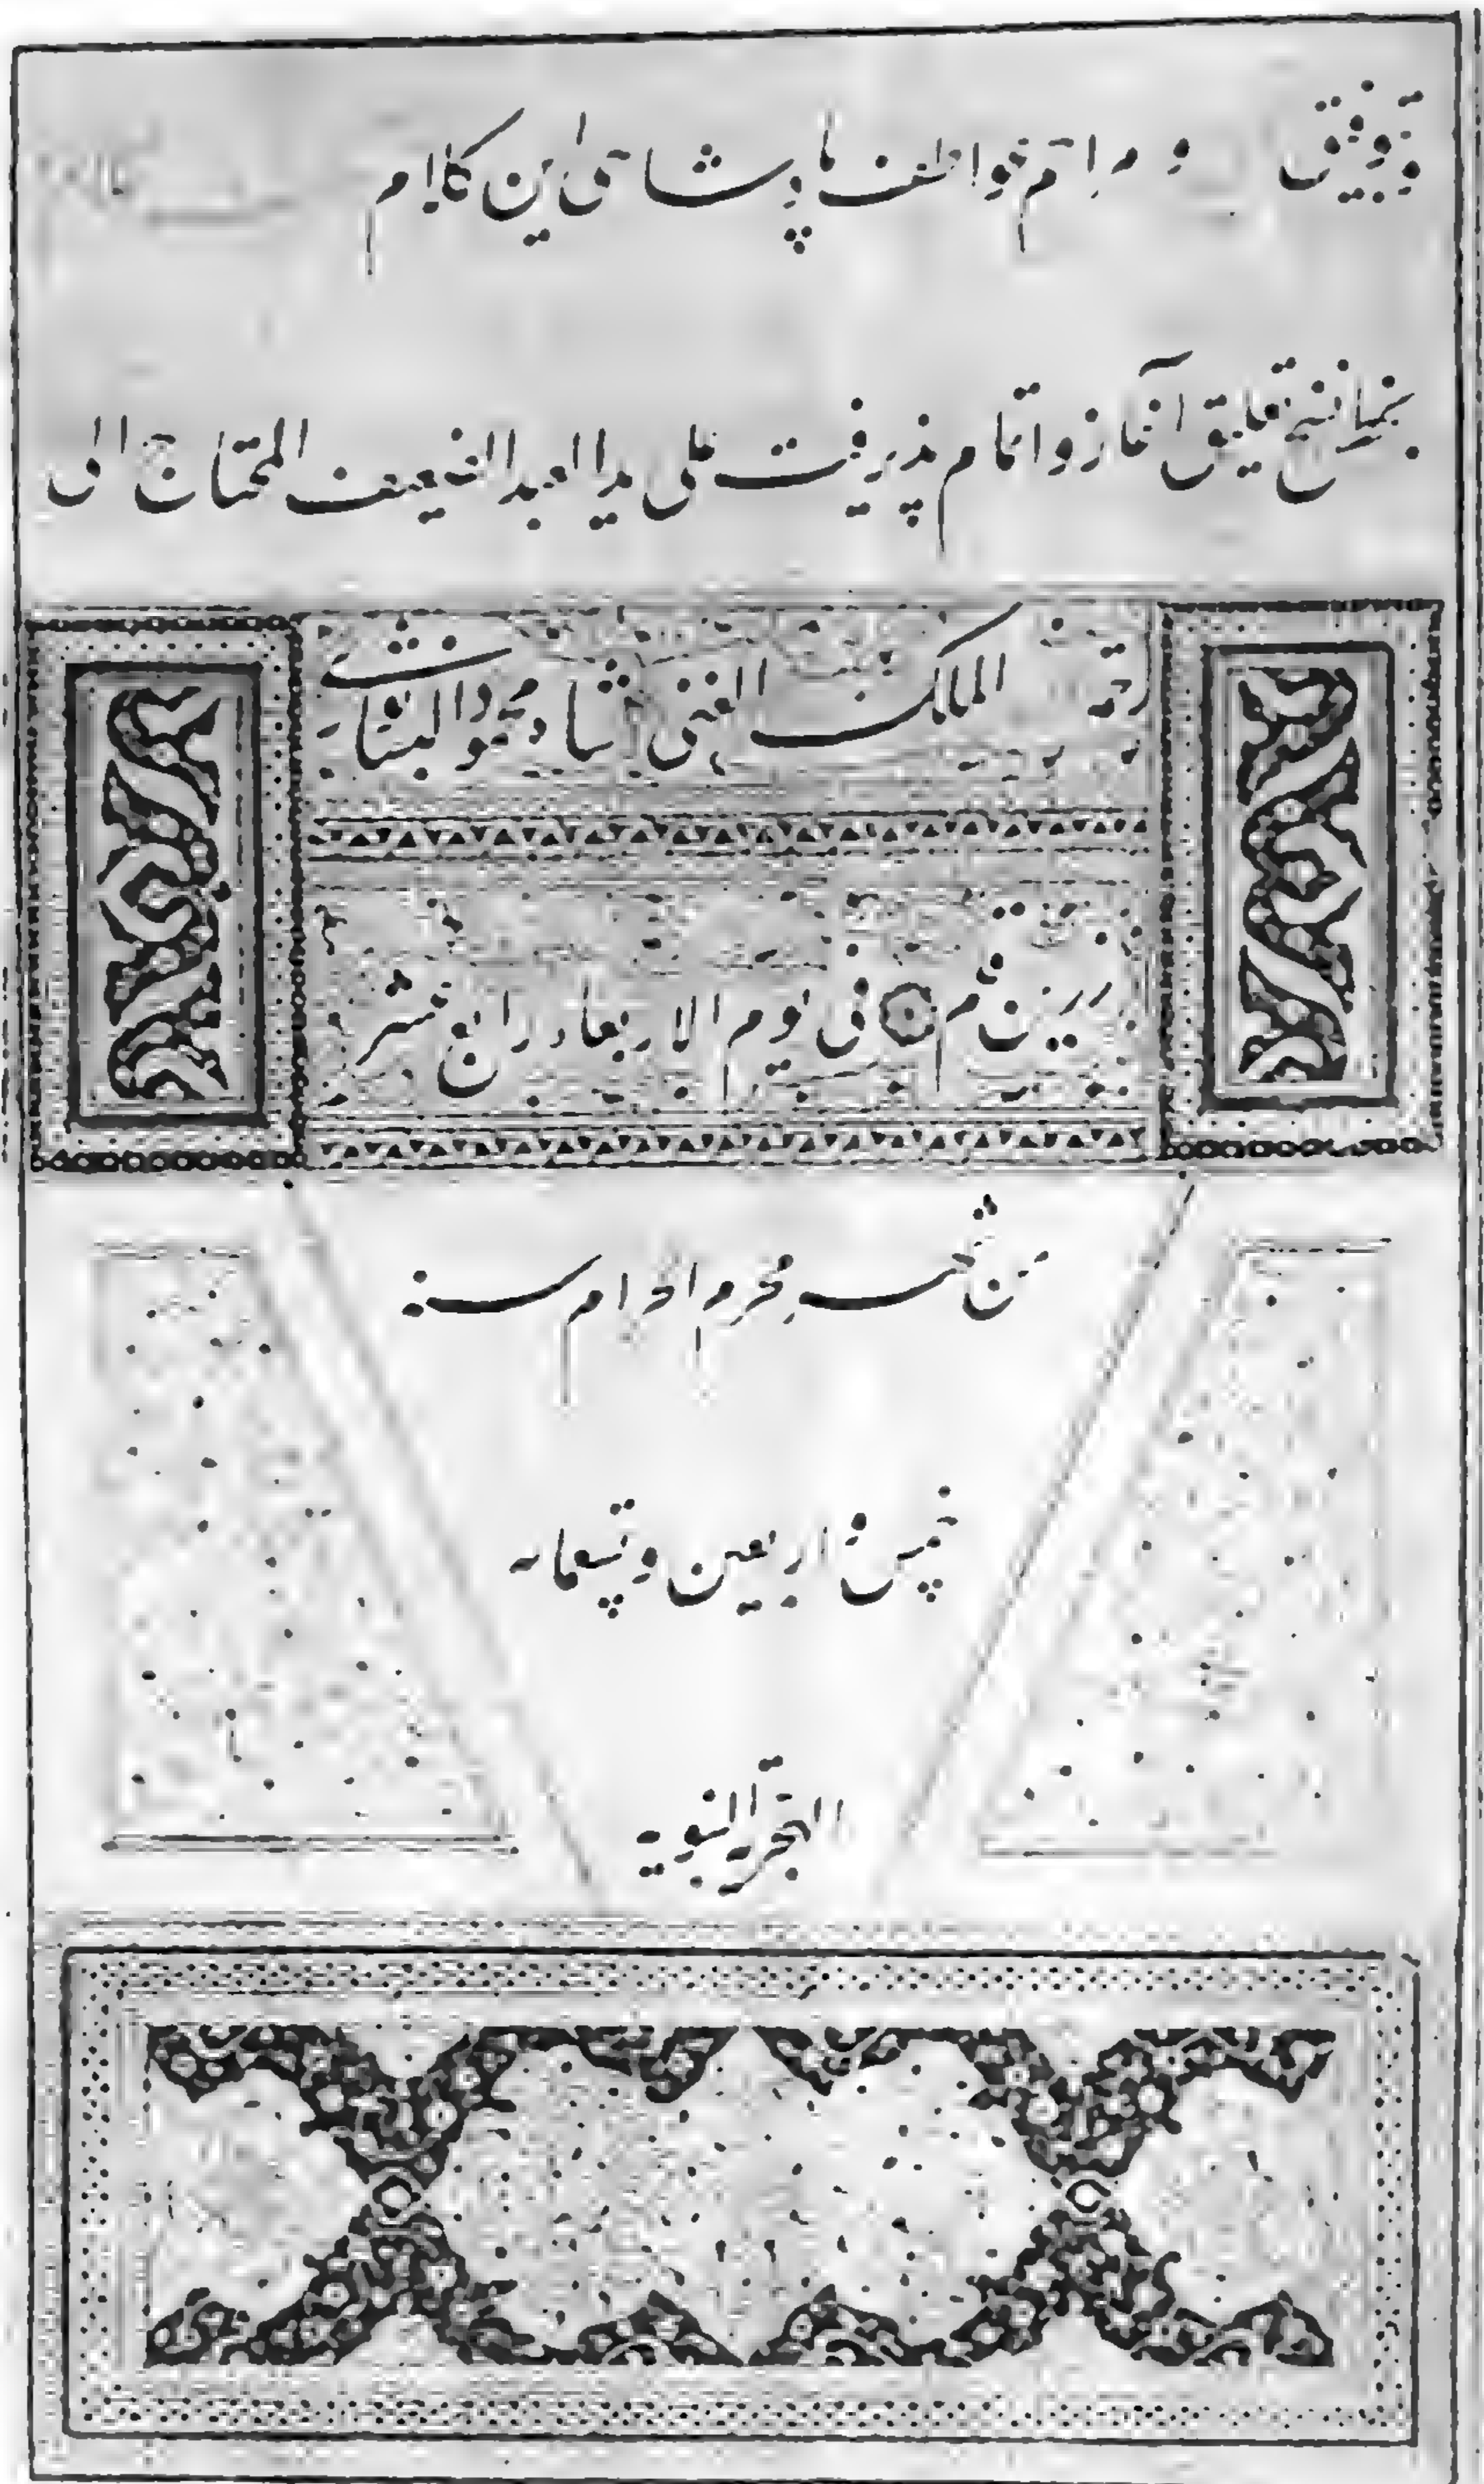 توفیق و مراسم عواطف پادشاهی این کلام
نسخ تعلیق آغاز و اتمام پذیرفت علی ید العبد الضعیف المحتاج الی
رحمة الملک الغنی شاه محمود النیشابوری
زرین قلم فی یوم الاربعاء رابع عشر
من شهر محرم الحرام سنة
خمس و اربعین و تسعمایه
الهجریة النبویه